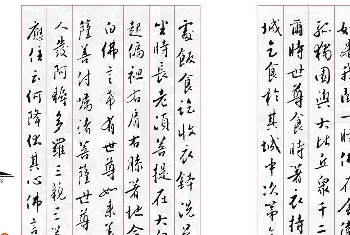 如是我聞一時佛在舍衛
孤獨園與大比丘眾千二
爾時世尊食時著衣持
城乞食於其城中次第乞
處飯食訖收衣鉢洗足
坐時長老須菩提在大
起偏袒右肩右膝著地合
白佛言希有世尊如來善
薩善付囑諸菩薩世尊
人發阿耨多羅三藐三菩
應住云何降伏其心佛言